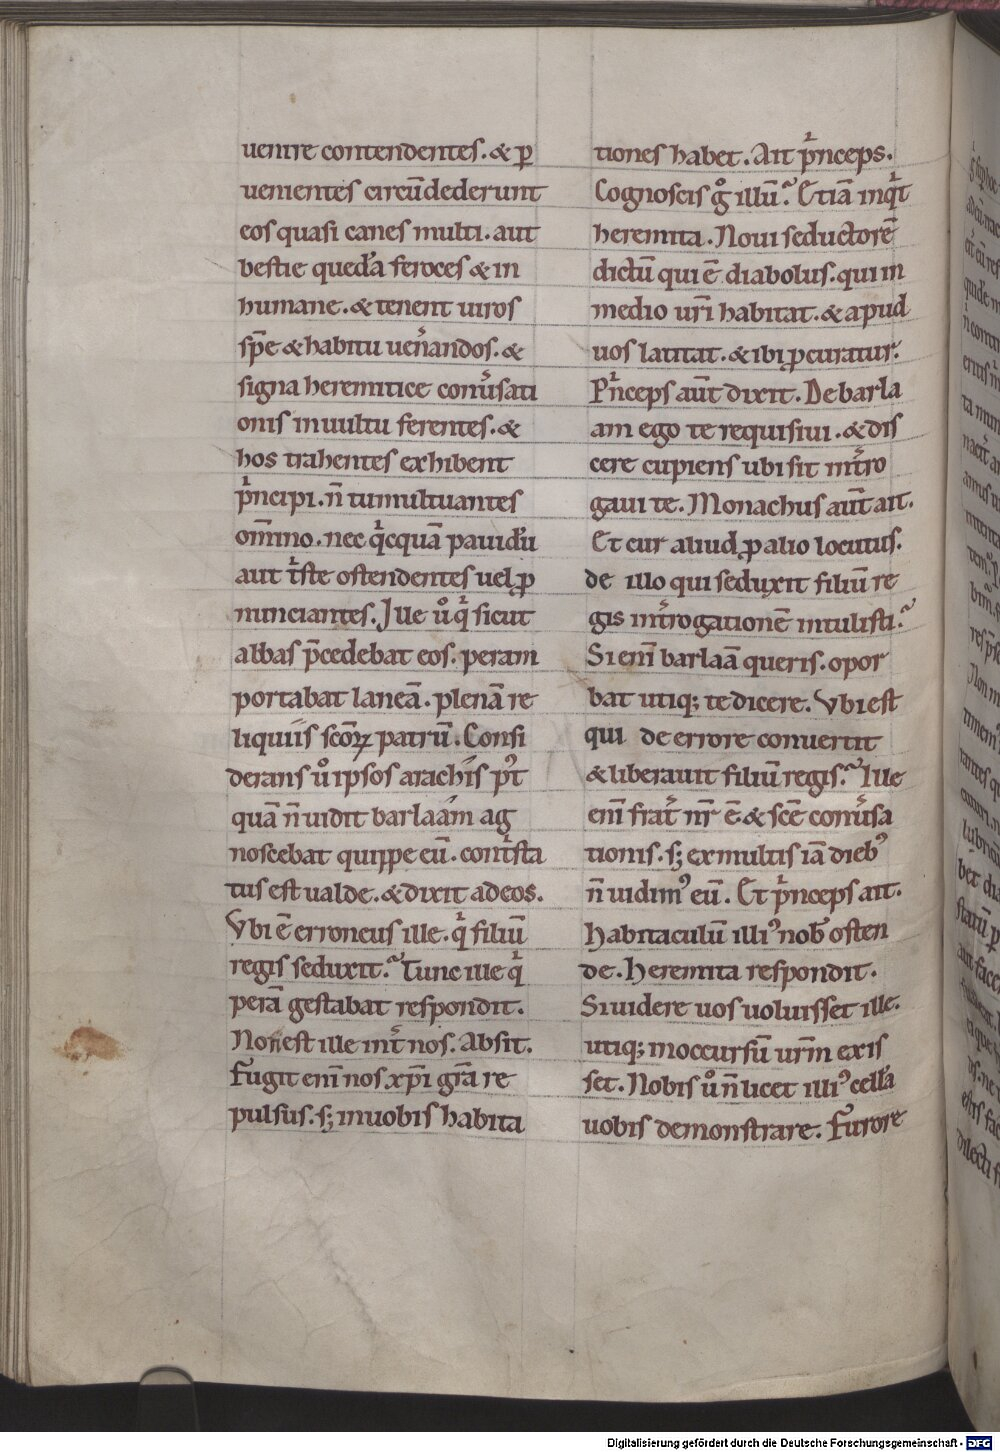 uenire contendentes. & ꝑ
uenientes circū dederunt
eos quasi canes multi. aut
bestie quedā feroces & in
humane. & tenent uiros
spe̅ & habitu uen̾andos. &
signa heremitice conu̾sati
onis in uultu ferentes. &
hos trahentes exhibent
pͥncipi. n̅ tumultuantes
om̅ino. nec qͥcquā pauidū
aut tͥste ostendentes uel ꝓ
nunciantes. Ille ů qͥ sicut
abbas p̅cedebat eos. peram
portabat laneā. plenā re
liquiis sco̅ꝝ patrū. Consi
derans ů ipsos arachis pͥ᾽t
quā n̅ uidit barlaam ag
noscebat quippe eū. contͥsta
tus est ualde. & dixit ad eos.
Vbi ē erroneus ille. qͥ filiū
regis seduxit? Tunc ille qͥ
perā gestabat respondit.
Non est ille int̾ nos. Absit.
Fugit eni̅ nos xp̅i gr̅a re
pulsus. sꝫ in uobis habita
tiones habet. Ait pͥnceps.
Cognoscis g̊ illū? Etiā inqͥt
heremita. Noui seductorē
dictū qui ē diabolus. qui in
medio ur̅i habitat. & apud
uos latitat. & ibi ꝓcuratur.
Pͥnceps aut̅ dixit. De barla
am ego te requisiui. & dis
cere cupiens ubi sit int̾ro
gaui te. Monachus aut̅ ait.
Et cur aliud ꝓ alio locutus.
de illo qui seduxit filiū re
gis int̾rogationē intulisti?
Si eni̅ barlaā queris. opor
bat utiqꝫ te dicere. Vbi est
qui de errore conuertit
& liberauit filiū regis? Ille
eni̅ frat̾ nr̅ ē & sce̅ conu̾sa
tionis. sꝫ ex multis iā diebꝰ
n̅ uidimꝰ eū. Et pͥnceps ait.
Habitaculū illiꝰ nob̅ osten
de. Heremita respondit.
Si uidere uos uoluisset ille.
utiqꝫ in occursū urm̅ exis
set. Nobis ů n̅ licet illiꝰ cellā
uobis demonstrare. Furore
Digitalisierung gefördert durch die Deutsche Forschungsgemeinschaft - DFG